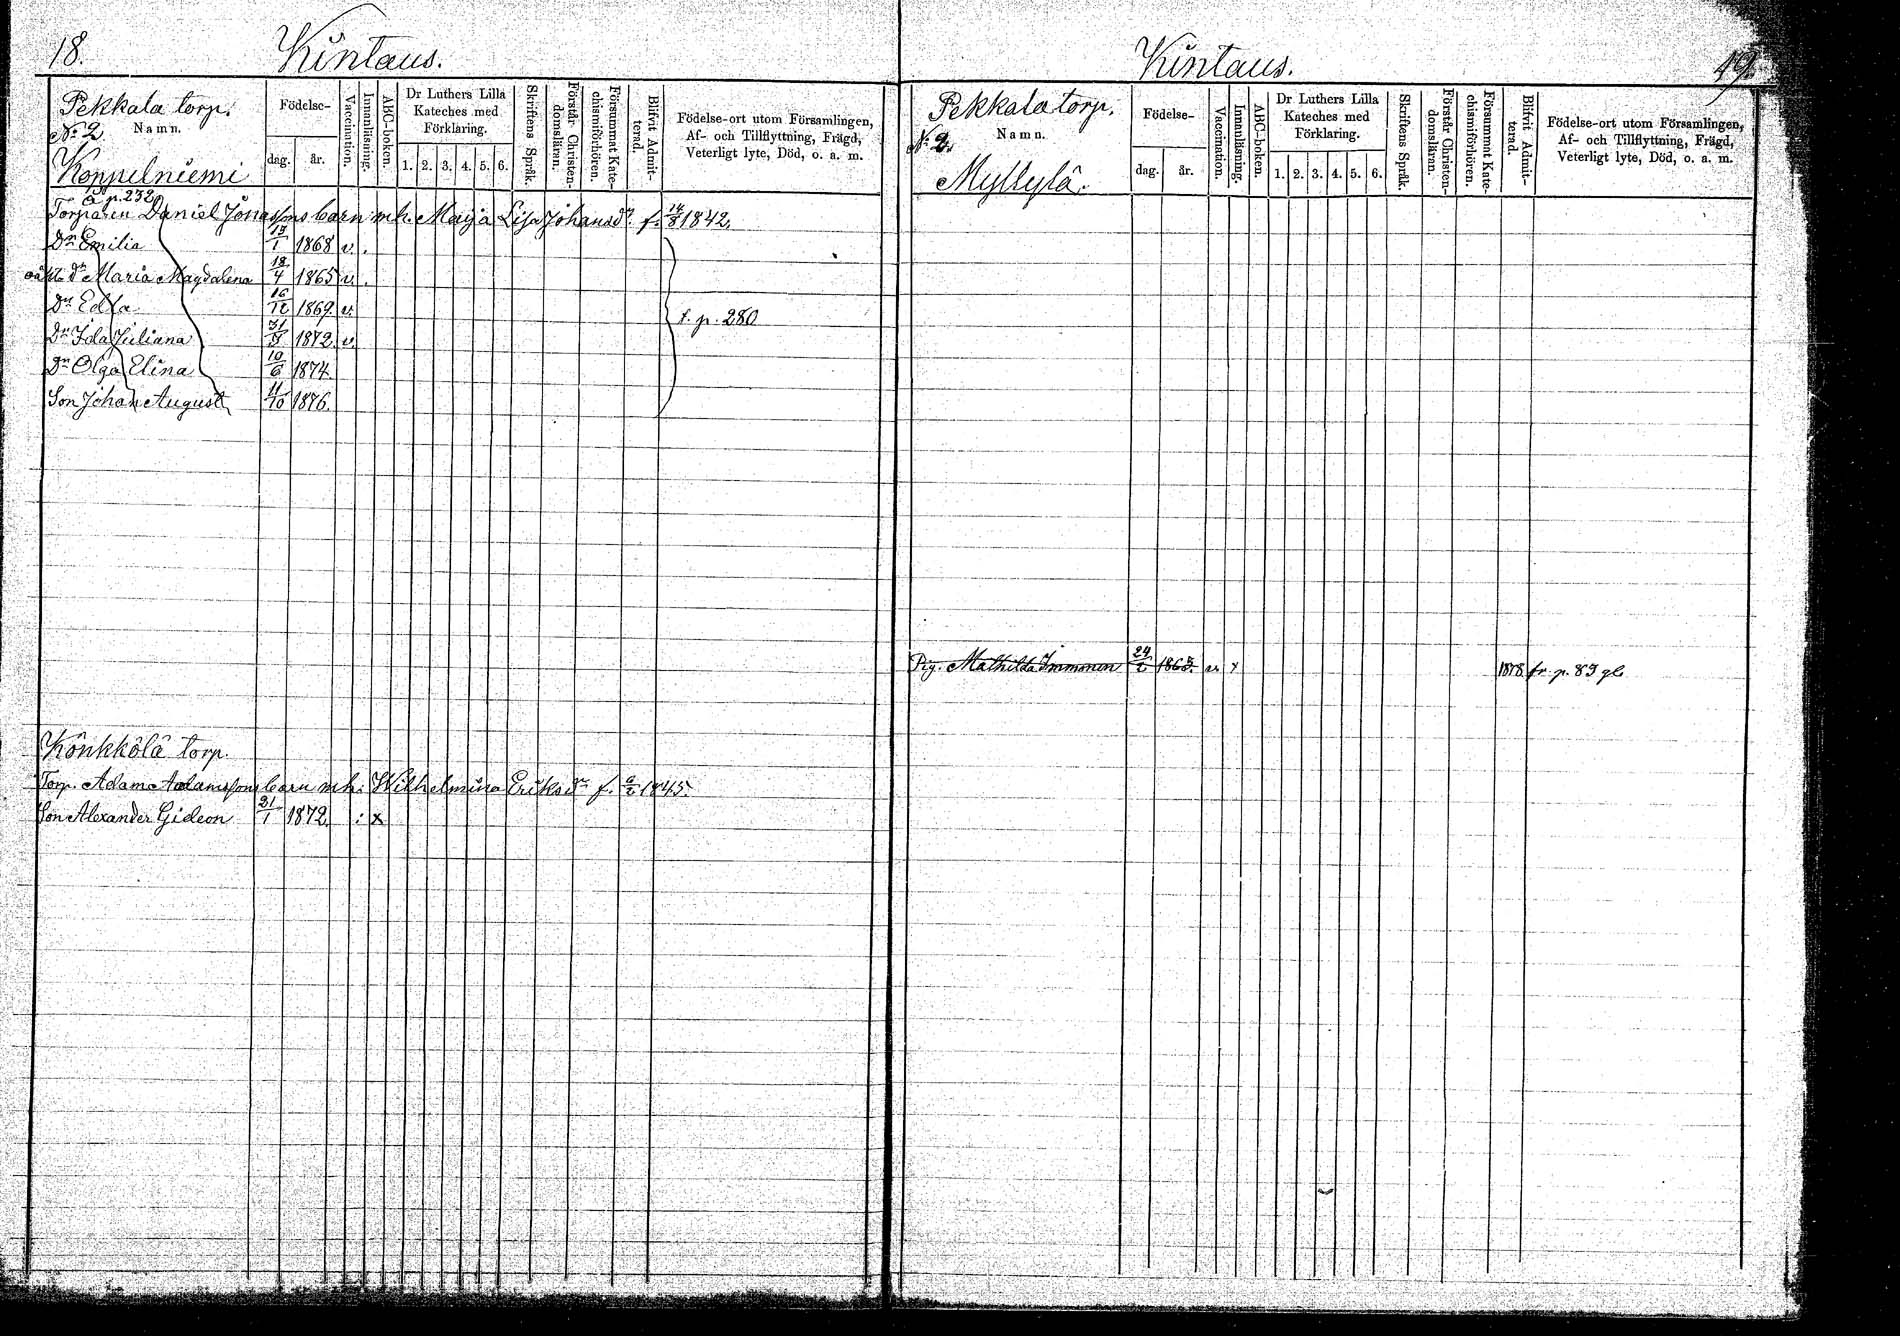 18.
Kintaus.
Pekkala torp.
No 2
Namn.
Koppelniemi
Födelse-
dag. år.
Vaccination.
Innanläsning.
ABC-boken.
Dr Luthers Lilla
Kateches med
Förklaring.
1. 2. 3. 4. 5. 6.
Skriftens Språk.
Förstår Christen-
domsläran.
Försummat Kate-
chismiförhören.
Blifvit Admit-
terad.
Födelse-ort utom Församlingen,
Af- och Tillflyttning, Frägd,
Veterligt lyte, Död, o. a. m.
å p. 232
Torparen Daniel Jonassons barn m. h. Maja Lisa Johansdr f. 14/8 1842.
Dr Emilia 13/1 1868 v.
dr Maria Magdalena 18/4 1865 v.
Dr Edla 16/12 1869. v.
t. p. 280
Dr Ida Juliana 31/3 1872. v.
Dr Olga Elina 10/6 1874.
Son Johan August 11/10 1876.
Könkkölä torp.
Torp. Adam Adamssons barn m. h. Wilhelmina Eriksdr f. 6/2 1845.
Son Alexander Gideon 21/1 1872. : x
Kintaus.
19.
Pekkala torp.
No 2.
Namn.
Myllylä.
Födelse-
dag. år.
Vaccination.
Innanläsning.
ABC-boken.
Dr Luthers Lilla
Kateches med
Förklaring.
1. 2. 3. 4. 5. 6.
Skriftens Språk.
Förstår Christen-
domsläran.
Försummat Kate-
chismiförhören.
Blifvit Admit-
terad.
Födelse-ort utom Församlingen,
Af- och Tillflyttning, Frägd,
Veterligt lyte, Död, o. a. m.
Pig. Mathilda Immonen 24/2 v. x 1878. fr. p. 89 gb